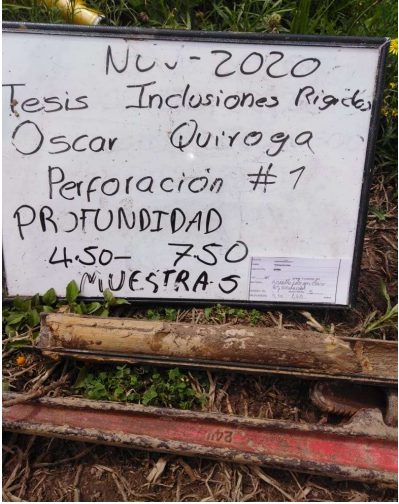 Nov-2020
Tesis Inclusiones Rigidas
Oscar Quiroga
Perforación #1
PROFUNDIDAD
4.50- 7.50
MUESTRA 5